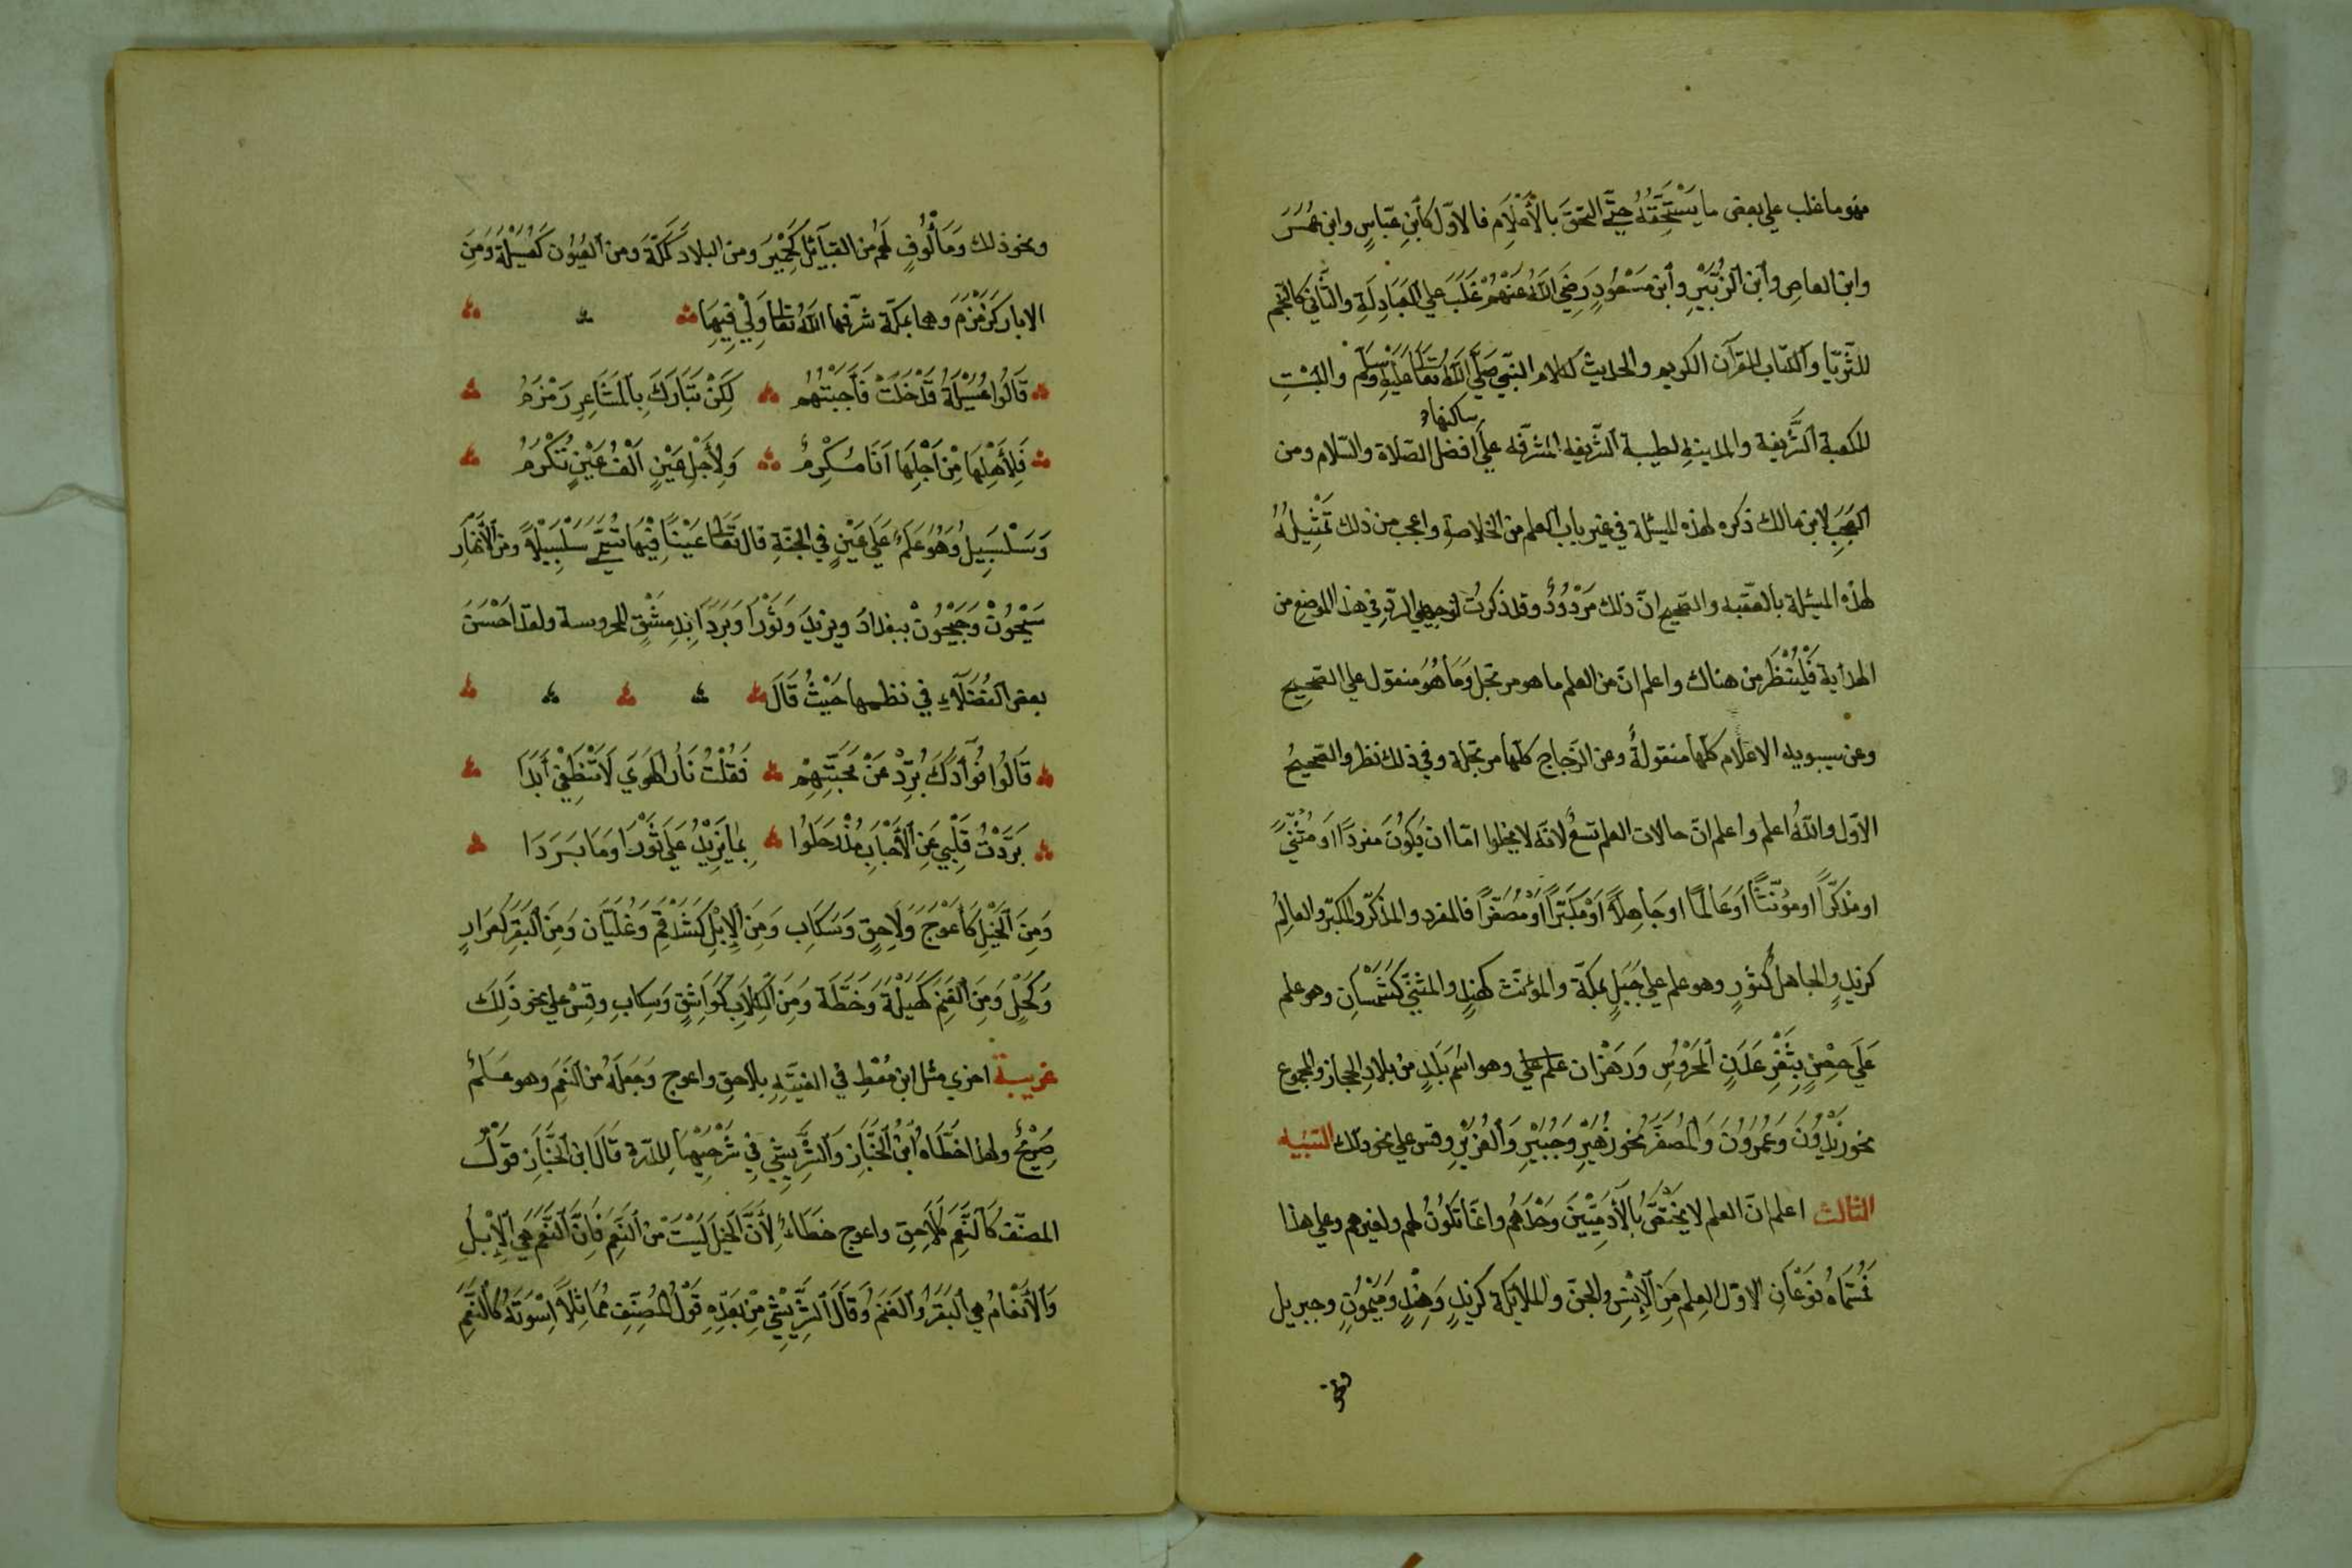 فهو ما غلب علي بعض ما يَسْتَحِقُّهُ حتّٰي التحقَ بالأَعْلَامِ فالاوّل كَأبنِ عبّاسٍ وابن عُمَرَ
وابن العاصِ وٱبن ٱلزُّبَيْرِ وٱبن مَسْعُودٍ رَضِيَ اللهُ عَنْهُمْ غَلَبَ علي العَبَادِلَةِ والثّانِي كالنّجم
للثّريّا وٱلكتاب للقرآن الكريم والحديث لكلام النّبي صَلَّي اللهُ تعالي عَلَيْهِ وَسلّم والبَيْتِ
للكعبة الشَّرِيفة والمدينةِ لطيبة الشّريفه المشرّفه عليٰ ساكنها افضل الصّلاة والسّلام ومن
العَجَبِ لابن مالك ذكره لهذه المسئلة في غير باب العلم من الخلاصةِ واعجب من ذلك تَمْثِيلُهُ
لهذه المسئلة بالعقبه والصّحيح انّ ذلك مَرْدُوْدٌ وقد ذكرتُ توجيهي الردِّ في هذا الموضع من
الهداية فَلْيُنْظَرْ من هناك واعلم انّ من العلم ما هو مرتجل وَمَا هُوَ منقول علي الصّحيح
وعن سيبويه الاعلام كلّها منقولةٌ وعن الزّجاج كلّها مرتجلة وفي ذلك نظر والصّحيحُ
الاوّل واللهُ اعلم واعلم انّ حالات العلم تسعٌ لانّه لا يخلوا امّا ان يَكُونَ مفردًا او مُثَنًّي
او مذكّرًا او مؤنّثًا اوعَالمًا او جَاهِلًا اوْ مكبّرًا اوْ مُصَغّرًا فالمفرد والمذكّر والمكبّر والعالِمُ
كزيدٍ والجاهلُ كثورٍ وهو علم علي جَبَلٍ بمكّة والمؤنّث كهندٍ والمثنّي كَشَمْسَانِ وهو علم
عَلَي حِصْنٍ بِثَغْرِ عَدَنٍ ٱلمَحْرُوْسِ وَرَهْزَان علم علي وهو اسْم بَلَدٍ منْ بلادِ الحجاز والمجموع
نحو زيْدُوْنَ وَعُمَرُوْنَ وَالْمُصَغَّرُ نحو زُهَيْرٍ وَجُبَيْرٍ وَٱلعُزَيْرِ وقس علي نحو ذلك التنبيه
الثالث اعلم انّ العلم لا يَخْتَصُّ بِالْآدَمِيِّيْنَ وَحْدَهُم وانّمَا تكُونُ لهم ولغيرهم وعلي هذا
فَمُسَمَّاهُ نَوْعَانِ الاوّل العلم مَنِ الاِنْسِ والجنّ والملائكة كزيدٍ وَهِنْدٍ وَمَيْمُونٍ وجبريل
ونحو
ونحو ذلك وَمَأْلُوْفٍ لهم من القبَآئل كَحِمْيَر ومن البلاد كَمَكّةَ ومن العُيُوْن كَعُسَيْلَةٍ وَمِنَ
الابار كَزَمْزَمَ وهما بمكّة شرّفها اللهُ تعَالي وَلِيْ فِيْهَا
قَالُوا عُسَيْلَةُ قَدْ حَلَتْ فَأَجَبْتُهُم لَكِنْ تَبَارَكَ بِالْمَشَاعِرِ زَمْزَمُ
فَلِأَهْلِهَا مِنْ اَجْلِهَا اَنَا مُكْرِمٌ وَلِأَجْلِ عَيْنٍ اَلْفُ عَيْنٍ تُكْرَمُ
وَسَلْسَبِيلُ وَهُوَ عَلَمٌ عَلَي عَيْنٍ في الجنّةِ قال تعَالي عَيْنًا فِيْهَا تُسَمَّي سَلْسَبِيْلًا ومن الأَنْهَارِ
سَيْحُوْنْ وَجَيْحُوْنْ ببغدادَ ويزيدَ وَثَوْرَا وَبَرَدَا بِدِمَشْقٍ المحروسة ولقد احْسَنَ
بعض الفُضَلَآءِ في نظمها حَيْثُ قَالَ
قَالُوا فُوآدُكَ بُرِّدْ عَنْ مَحَبَّتِهِمْ فَقُلْتُ نَارُ الهَوَي لَا تَنْطَفِيْ أَبَدَا
بَرَّدْتُ قَلْبِي عَنِ ٱلأَحْبَابِ مُذْ رَحَلُوا بِمَا يَزِيْدُ عَلَي ثَوْرَا وَمَا بَرَدَا
وَمِنَ ٱلخَيْلِ كَأَعْوَجَ وَلَاحِقٍ وَسَكَابِ وَمَنَ الْاِبْلِ كَشَدْقَمَ وَعُلَيَّان وَمِنَ ٱلبَقَرِ كَعَرَارٍ
وَكَحْلٍ وَمِنَ ٱلغَنَمِ كَهَيْلَةَ وَخَطَّة وَمِنَ ٱلكِلَابِ كَوَاشِقٍ وَسِكابِ وقِسْ علي نحو ذَلِكَ
غريبة اخري مثل ابن مُعْطٍ في الفيّتِه بلاحِق واعوج وَجَعَلَهُ من النَّعَمِ وهو عَلَمٌ
صَرِيْحٌ ولهذا خطَّأَهُ ٱبْنُ ٱلخَبَّاز وَالشَّرِيشِي فِيْ شَرْحَيْهِمَا للدّرة قَالَ ابن ٱلخَبَّاز قَوْلُ
المصنّف كَالنَّعَمِ كَلَاحِق واعوج خطَاءٌ لِأَنَّ ٱلخَيْلَ لَيْسَتْ مِنَ ٱلنَّعَمِ فَإِنَّ ٱلنَّعَمَ هِيَ ٱلاِبْلُ
وَٱلأَنْعَامُ هي ٱلبَقَرُ وَٱلغَنَمُ وَقَالَ ٱلشَّرِيْشِي مِنْ بَعْدِهِ قَوْلُ المُصَنّفِ مُمَاثِلًا اُسْوَتَهُ كَالنَّعَمِ